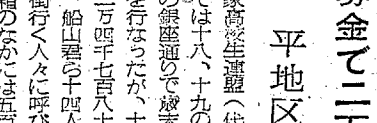 金で二
平地区
家高校生連盟（
では十八、十九の
の銀座通りで歳
を行なったが、十
二万四千七百八十
船山君ら十四人
街行く人々に呼び
箱のなかには五百